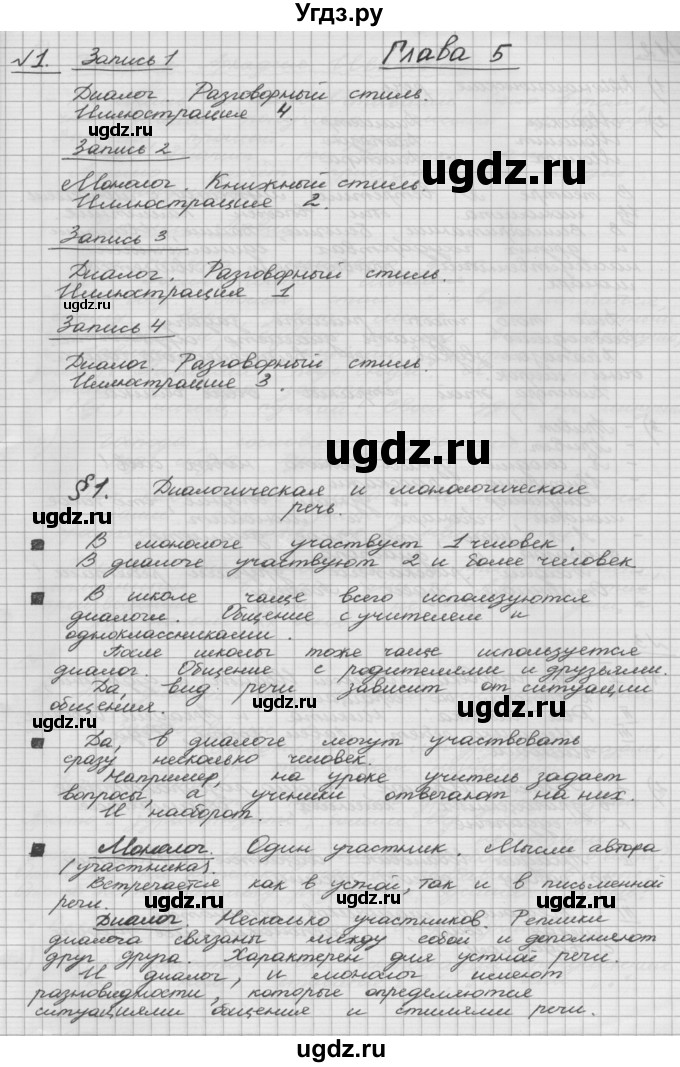 Угдз.ру
√1. Запись 1 Глава 5
Диалог. Разговорный стиль.
Иллюстрация 4.
ugdz.ru
Запись 2
ugdz.ru
Монолог. Книжный стиль.
Иллюстрация 2.
Запись 3
Диалог. Разговорный стиль.
Иллюстрация 1
ugdz.ru
Запись 4
Диалог. Разговорный стиль.
Иллюстрация 3.
ugdz.ru
§1. Диалогическая и монологическая
речь.
ugdz.ru
В монологе участвует 1 человек.
В диалоге участвуют 2 и более человек
ugdz.ru
В школе чаще всего используются
диалоги. Общение с учителем и
одноклассниками.
После школы тоже чаще используется
диалог. Общение с родителями и друзьями.
Да, вид речи зависит от ситуации
общения.
ugdz.ru
ugdz.ru
ugdz.ru
Да, в диалоге могут участвовать
сразу несколько человек.
Например, на уроке учитель задает
вопросы, а ученики отвечают на них.
И наоборот.
Монолог. Один участник. Мысли автора
(участника).
Встречается как в устной, так и в письменной
речи.
Диалог. Несколько участников. Реплики
диалога связаны между собой и дополняют
друг друга. Характерен для устной речи.
И диалог, и монолог имеют
разновидности, которые определяются
ситуациями общения и стилями речи.
ugdz.ru